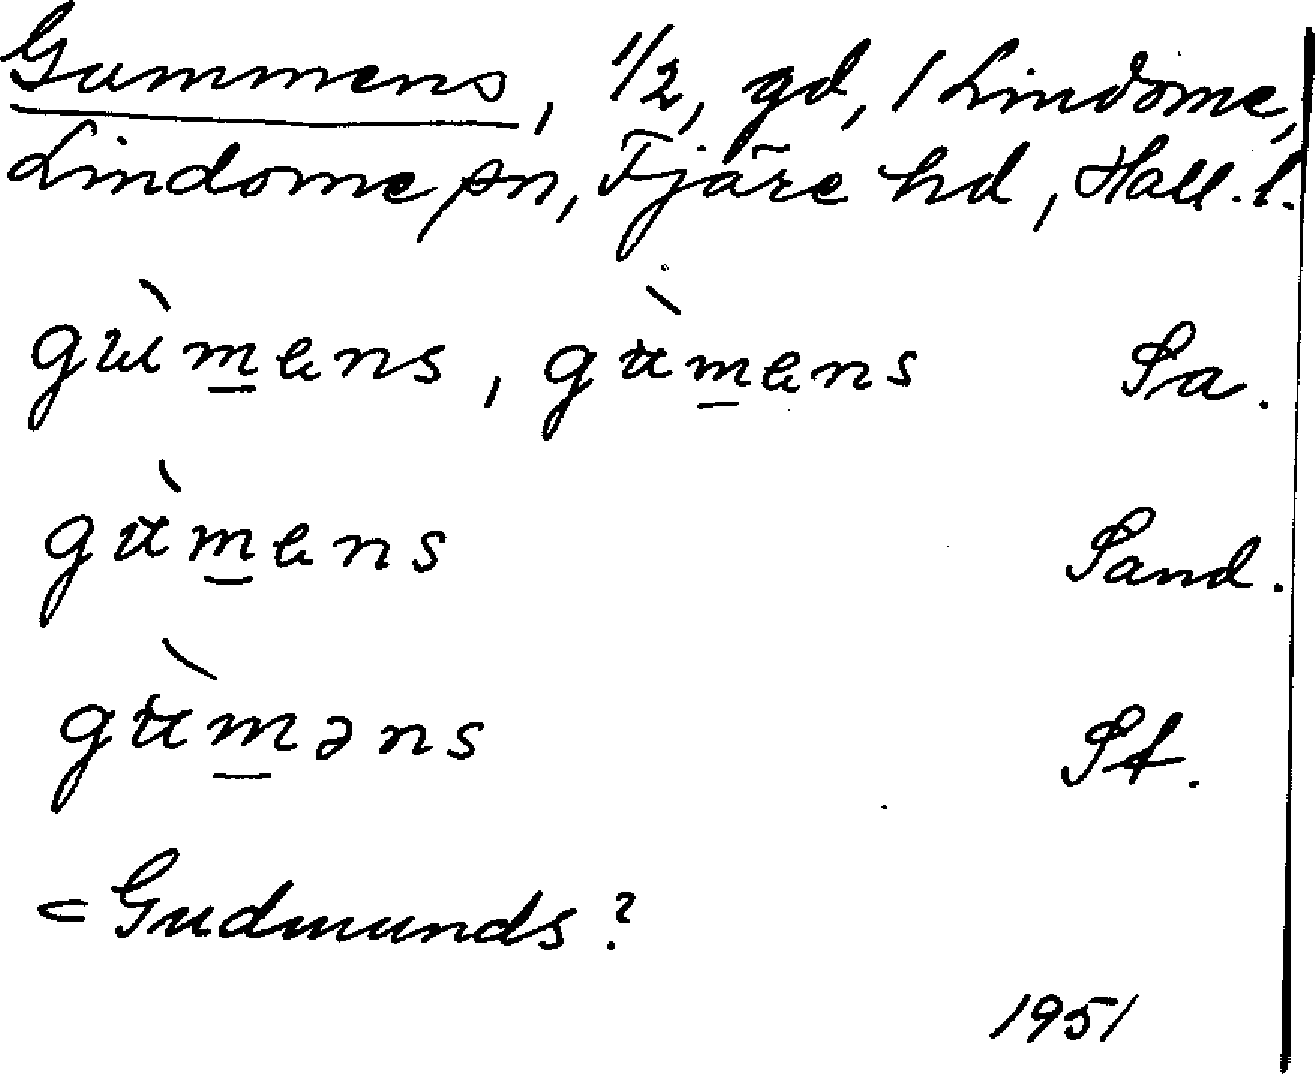 Gummens, 1/2, gd, 1 Lindome,
Lindome sn, Fjäre hd, Hall. l.
gùmens, gùmens Sa.
gùmens Sand.
gùməns St.
= Gudmunds?
1951